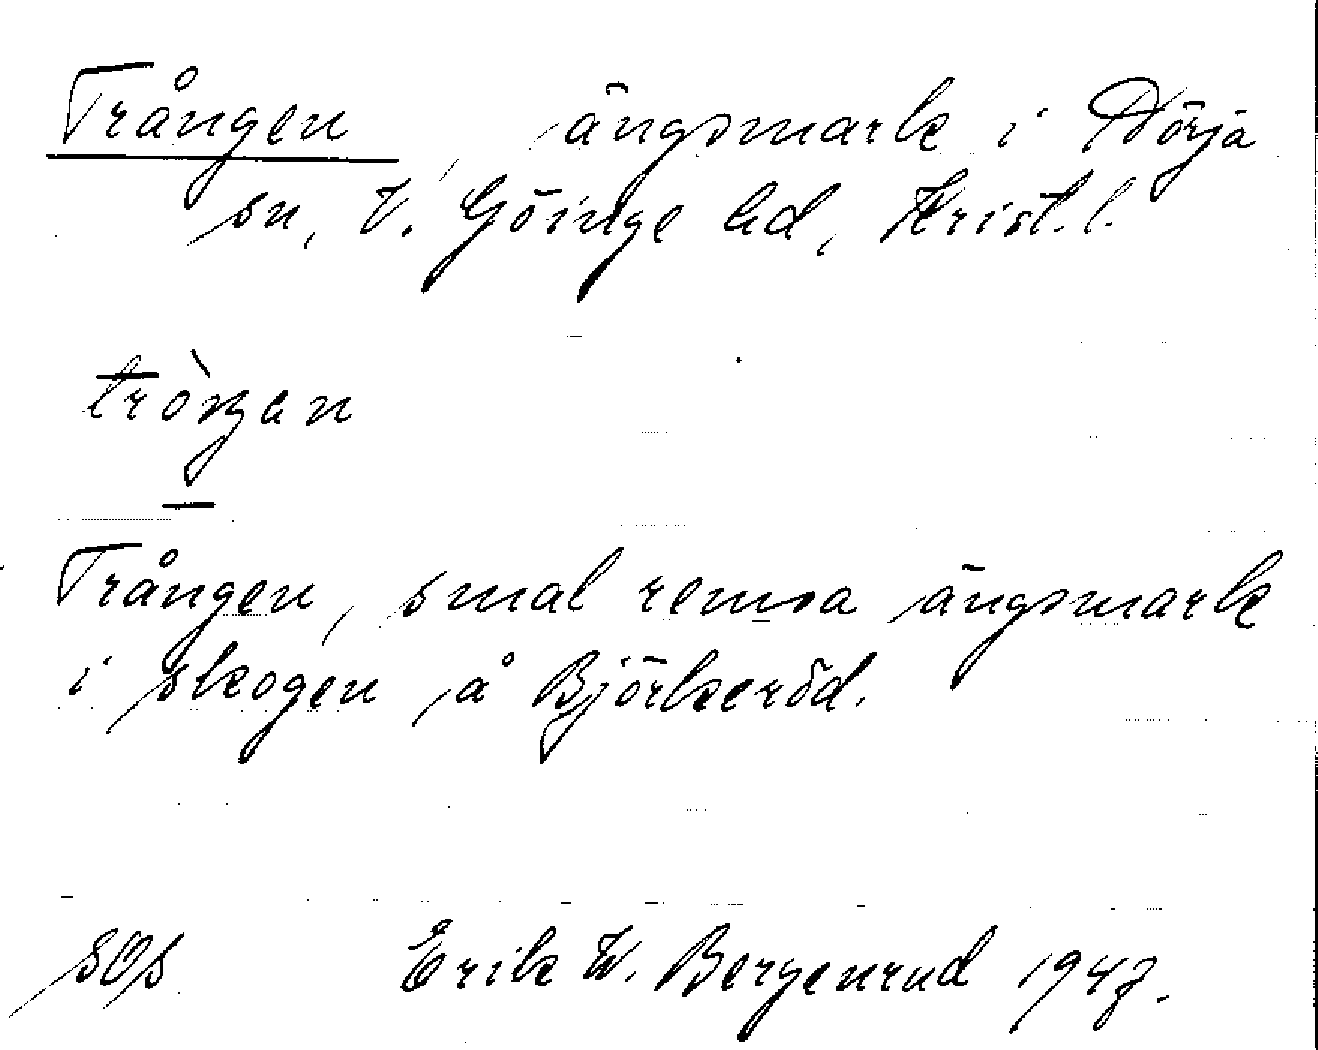 Trången, ängsmark i Nörja
sn, V. Göinge hd, Krist. l.
tròŋan
Trången, smal remsa ängsmark
i skogen å Björkeröd.
Erik W. Bergenrud 1947.